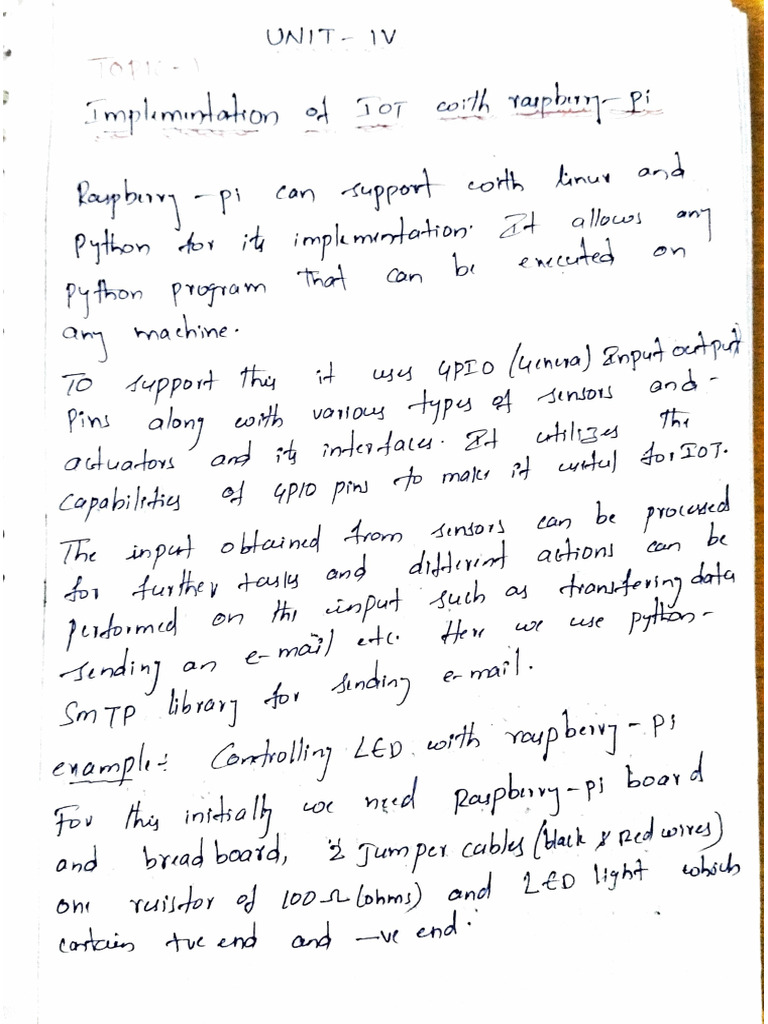 UNIT - IV
TOPIC - 1
Implementation of IOT with raspberry-pi
Raspberry-pi can support with linux and
Python for its implementation. It allows any
python program that can be executed on
any machine.
To support this it uses GPIO (General) Input output
Pins along with various types of sensors and-
actuators and its interfaces. It utilizes the
capabilities of GPIO pins to make it useful for IOT.
The input obtained from sensors can be processed
for further tasks and different actions can be
performed on the input such as transfering data
sending an e-mail etc. Here we use python-
SMTP library for sending e-mail.
example:- Controlling LED with raspberry-pi
For this initially we need Raspberry-pi board
and bread board, 2 Jumper cables (black & Red wires)
one resistor of 100Ω (ohms) and LED light which
contains +ve end and -ve end.